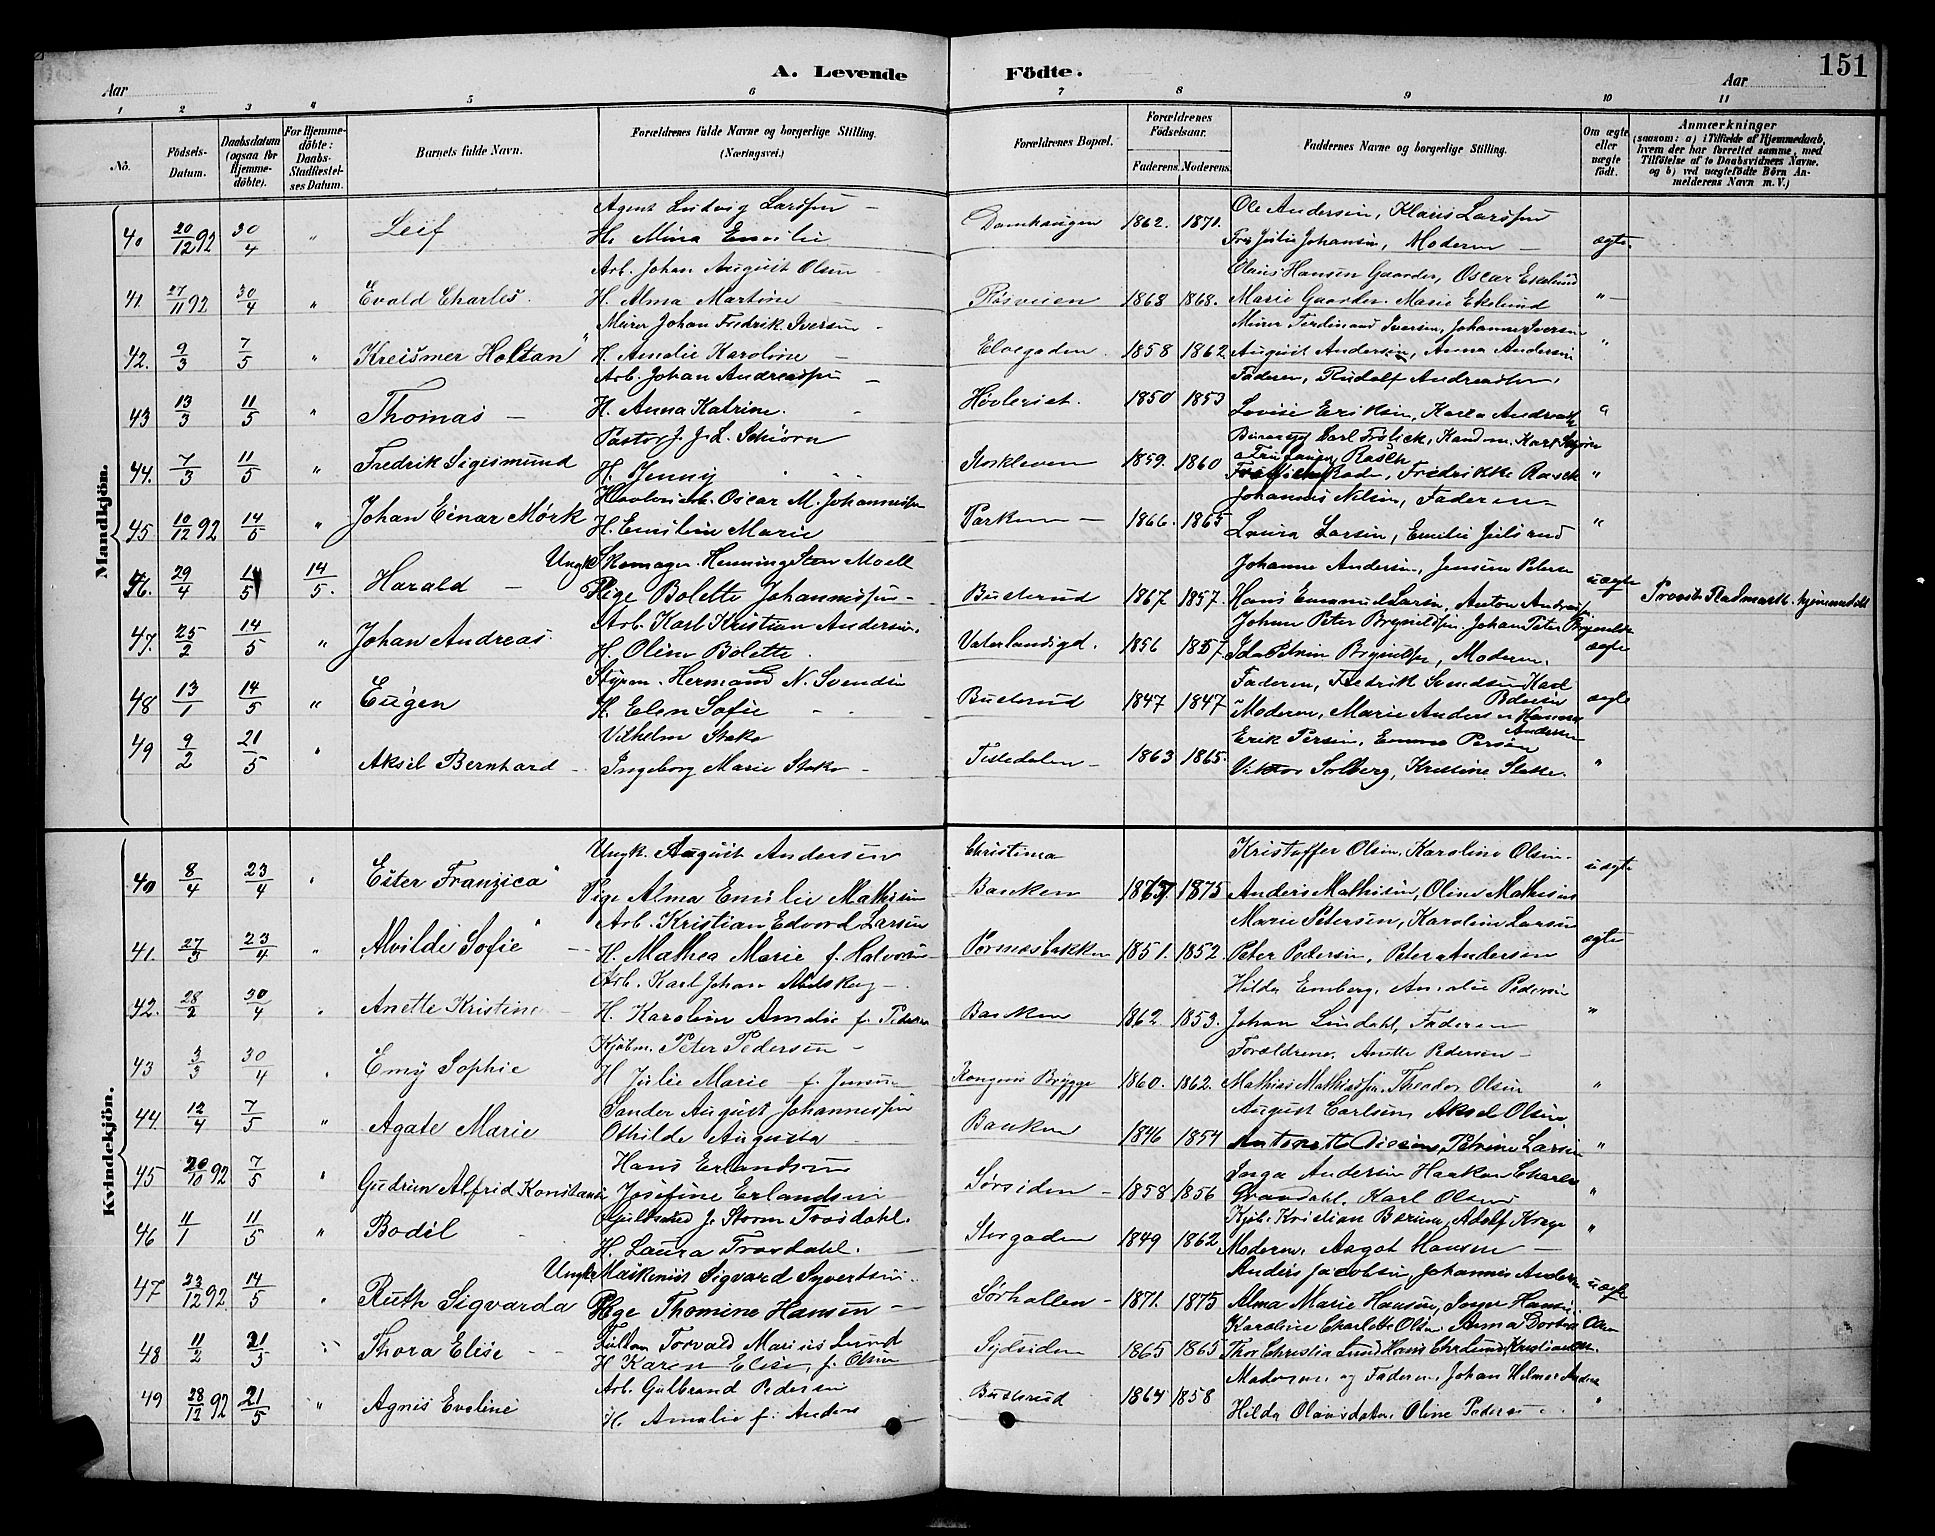 A. Levende Födte.
151
Aar
Aar
1 2 3 4 5 6 7 8 9 10 11
No.
Födsels-Datum.
Daabsdatum (ogsaa for Hjemme-döbte).
For Hjemme-döbte: Daabs-Stadfestel-ses Datum.
Barnets fulde Navn.
Forældrenes fulde Navne og borgerlige Stilling. (Næringsvei.)
Forældrenes Bopæl.
Forældrenes Födselsaar.
Faderens. Moderens.
Faddernes Navne og borgerlige Stilling.
Om ægte eller uægte födt.
Anmærkninger
(saasom: a) i Tilfælde af Hjemmedaab, hvem der har forrettet samme, med Tilföielse af to Daabsvidners Navne. og b) ved uægtefödte Börn An-melderens Navn m. V.)
Mandkjön.
Agent Ludvig Larssen Ole Andersen, Klaris Larssen
40 20/12 92 30/4 " Leif H. Mina Emilie Damhaugen 1862. 1871. Frk Julie Johansen, Moderen ægte.
Arb. Johan August Olsen Claus Hansen Gaarder, Oscar Ekelund
41 27/11 92 30/4 " Evald Charles. H. Alma Martine Røsveien 1868 1868. Marie Gaarder. Marie Ekelund "
Murer Johan Fredrik Iversen Murer Ferdinand Iversen, Johanne Iversen
42. 9/3 7/5 " Kreismer Holtan H. Amalie Karoline Elvegaden. 1858 1862 August Andersen, Anna Andersen "
Arb. Johan Andreassen Faderen, Rudolf Andreassen,
43 13/3 11/5 " Thomas H. Anna Katrine. Høvleriet. 1850 1853 Lovise Eriksen, Karla Andreass
Pastor J. J. L. Schiörn
44. 7/3 11/5 " Fredrik Sigismund H. Jenny Storkleven 1859. 1860 Fredrikke Rasch "
Oscar M. Johannessen Johannes Nilsen, Faderen
45 10/12 92 14/5 " Johan Einar Mörk H. Emilie Marie Parken 1866. 1865 Laura Larsen, Emilie "
Ungk. Skomager. Henning Sten Moell Johanne Andersen, Jensine Peterse
46. 29/4 14/5 14/5. Harald Pige Bolette Johannessen Busterud 1867 1857. Hans Emanuel Larsen, Anton Andreas uægte Provst Radmark. hjemmedöbt
Arb. Karl Kristian Andersen. Johan Peter Brynildsen, Johan Peter Brynilds
47. 25/2 14/5 " Johan Andreas. H. Oline Bolette. Vaterlandsgd. 1856 1857 Ida Petrine Brynildsen, Moderen. ægte
Styrm. Hermand N. Svendsen Faderen, Fredrik Svendsen Karl
48 13/1 14/5 " Eugen H. Elen Sofie Busterud 1847 1847 Moderen, Marie Andersen Hanna Andersen ægte
Vilhelm Stake Erik Persen, Emma Persen
49 9/2 21/5 " Aksel Bernhard Ingeborg Marie Stake Tistedalen 1863 1865. Viktor Solberg, Kristine Stake. "
Kvindekjön.
Ungk. August Andersen Christiania Kristoffer Olsen, Karoline Olsen.
40 8/4 23/4 " Ester Franzica Pige Alma Emilie Mathisen Banken 1875 Anders Mathisen, Oline Mathisen uægte
Arb. Kristian Edvard Larsen Marie Petersen, Karoline Larsen
41. 27/3 23/4 " Alvilde Sofie H. Mathea Marie f. Halvorsen Pernesbakken 1851. 1852. Peter Pedersen, Peter Andersen ægte
Arb. Karl Johan Hilda Emberg, Amalie Pedersen
42. 28/2 30/4 " Anette Kristine H. Karoline Amalie f. Pedersen Banken 1862 1853. Johan Lindahl, Faderen "
Kjöbm. Peter Pedersen Forældrene, Anette Pedersen
43 3/3 30/4 " Emy Sophie H Julie Marie f. Jensen Kongens Brygge 1860. 1862. Mathias Mathiassen. Theodor Olsen "
Sander August Johannessen August Carlsen, Aksel Olsen.
44 12/4 7/5 " Agate Marie Othilde Augusta Banken 1846 1854 Antonette Petrine Larsen "
Hans Erlandsen Inga Andersen Haakon Charles
45 20/10 92 7/5 " Gudrun Alfrid Konstanse Josefine Erlandsen Sørsiden 1858 1856 Grandahl. Karl Olsen "
Gjultsmed J. Storm Trosdahl. Kjöb. Kristian Barum, Adolf Krage
46 11/1 11/5 " Bodil H. Laura Trosdahl. Storgaden 1849 1862 Moderen, Aagot Hansen "
Ungk. Maskenist Sigvard Syvertsen. Anders Jacobsen, Johannes Andersen
47 23/12 92 14/5 " Ruth Sigvarda Pige Thomine Hansen Sørhallen 1871. 1875 Alma Marie Hansen, Inger Hansen. uægte
Torvald Marius Lund Karoline Charlotte Olsen Anna Dorthea Olsen
48 11/2 21/5 " Thora Elise H Karen Elise, f. Olsen Sydsiden 1865 1865 Thor Christia Lund Hans Chr Lund Kristian
Arb. Gulbrand Pedersen Moderen. og Faderen. Johan Helmer Anders
49 28/12 92 21/5 " Agnes Eveline H. Amalie f. Anders Busterud 1864 1858 Hilda Olausdatter. Oline Pedersen "